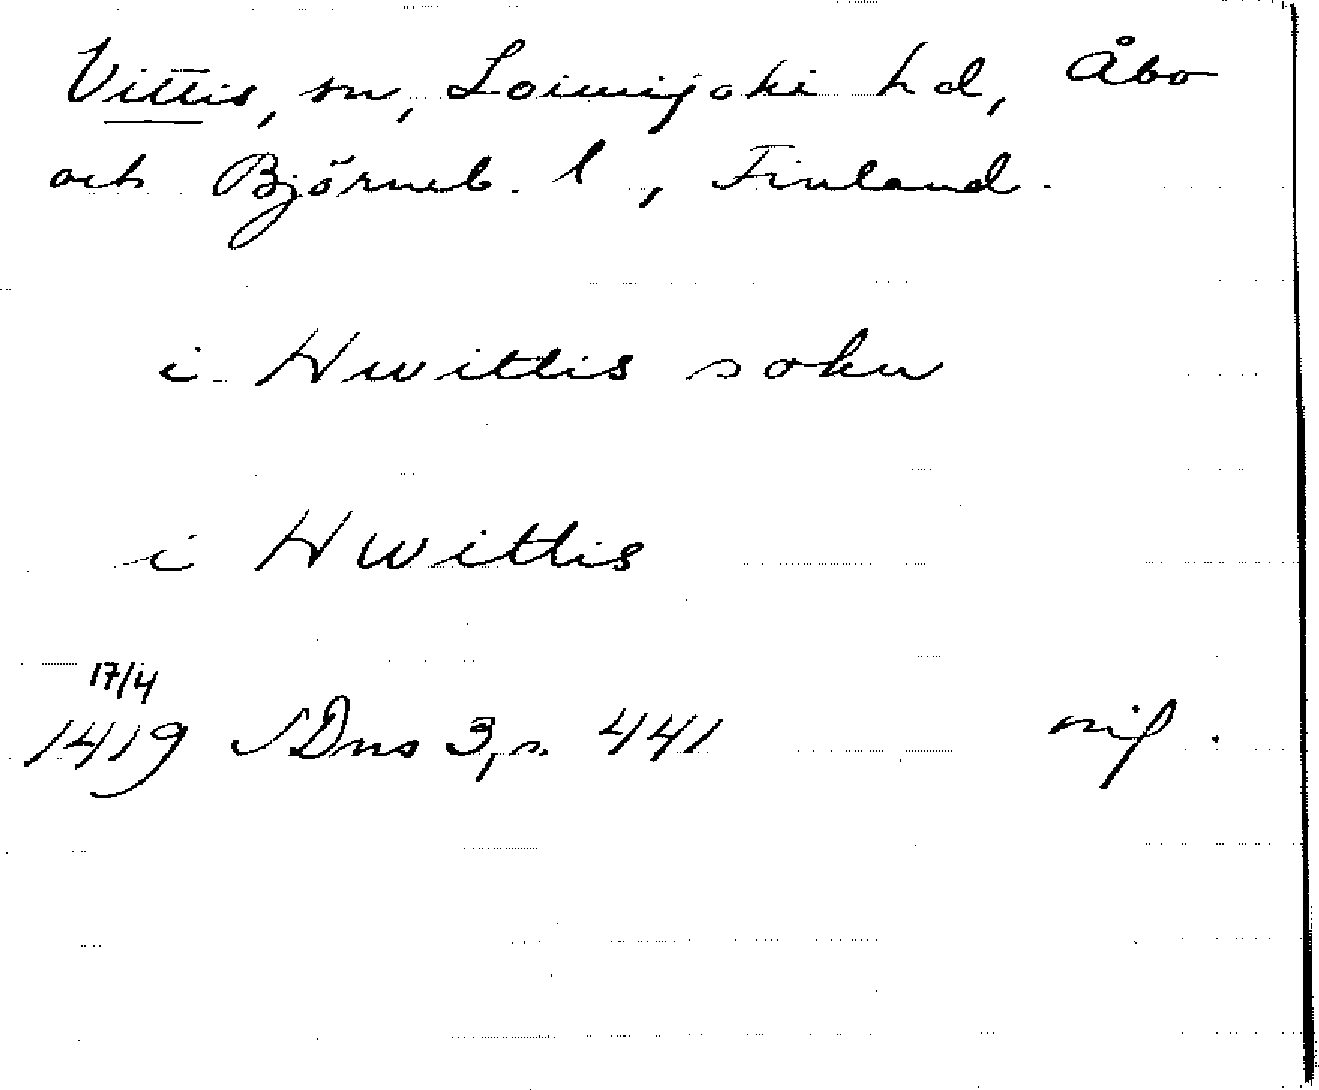 Vittis, sn, Loimijoki hd, Åbo
och Björneb. l, Finland.
i Hwittis sokn
i Hwittis
17/4
1419 SDns 3, s. 441